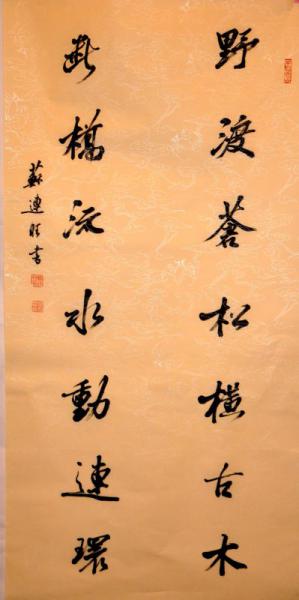 野渡蒼松横古木
断橋流水動連環
蘇連[?]書